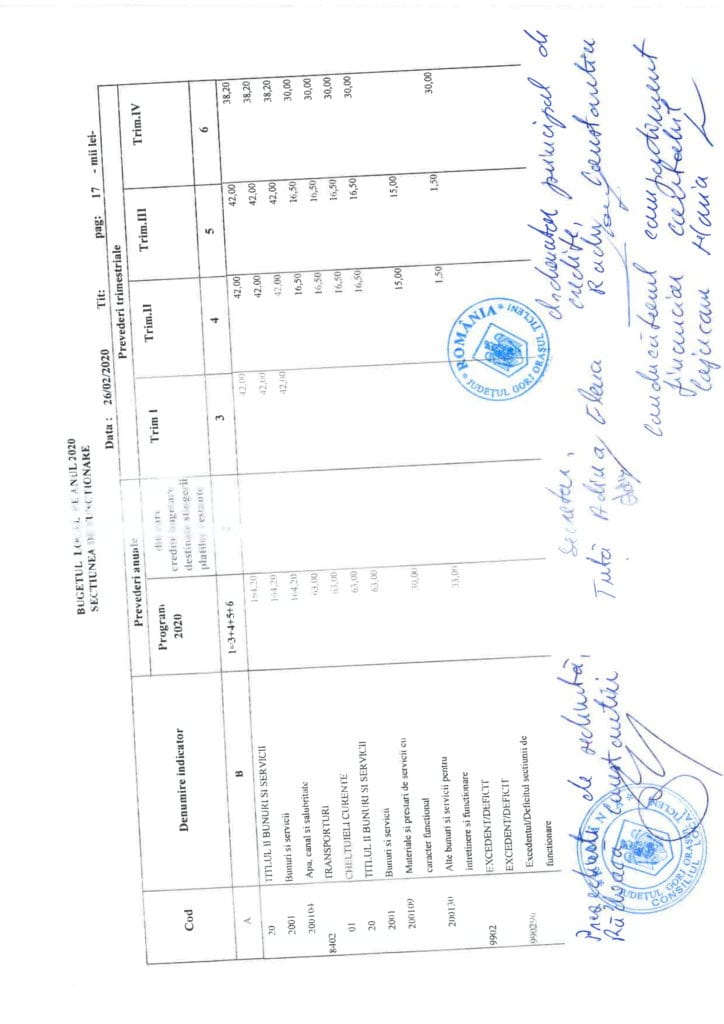 BUGETUL LOCAL PE ANUL 2020
SECTIUNEA DE FUNCTIONARE
Data : 26/02/2020 Tit: pag: 17 - mii lei-
Cod Denumire indicator Prevederi anuale Prevederi trimestriale
Program 2020 din care credite bugetare destinate stingerii platilor restante Trim I Trim.II Trim.III Trim.IV
A B 1=3+4+5+6 2 3 4 5 6
20 TITLUL II BUNURI SI SERVICII 164,20 42,00 42,00 42,00 38,20
2001 Bunuri si servicii 164,20 42,00 42,00 42,00 38,20
200104 Apa, canal si salubritate 164,20 42,00 42,00 42,00 38,20
8402 TRANSPORTURI 63,00 16,50 16,50 30,00
01 CHELTUIELI CURENTE 63,00 16,50 16,50 30,00
20 TITLUL II BUNURI SI SERVICII 63,00 16,50 16,50 30,00
2001 Bunuri si servicii 63,00 16,50 16,50 30,00
200109 Materiale si prestari de servicii cu 30,00 15,00 15,00
caracter functional
200130 Alte bunuri si servicii pentru 33,00 1,50 1,50 30,00
intretinere si functionare
9902 EXCEDENT/DEFICIT
EXCEDENT/DEFICIT
990296 Excedentul/Deficitul sectiunii de
functionare
Președinte de ședință,
Constantin
JUDEȚUL GORJ ORAȘUL ȚICLENI
CONSILIUL
Secretar,
Tută Adina Elena
ROMÂNIA
JUDEȚUL GORJ ORAȘUL ȚICLENI
Ordonator principal de
credite,
Radu Constantin
Conducătorul compartiment
financiar contabil
Maria